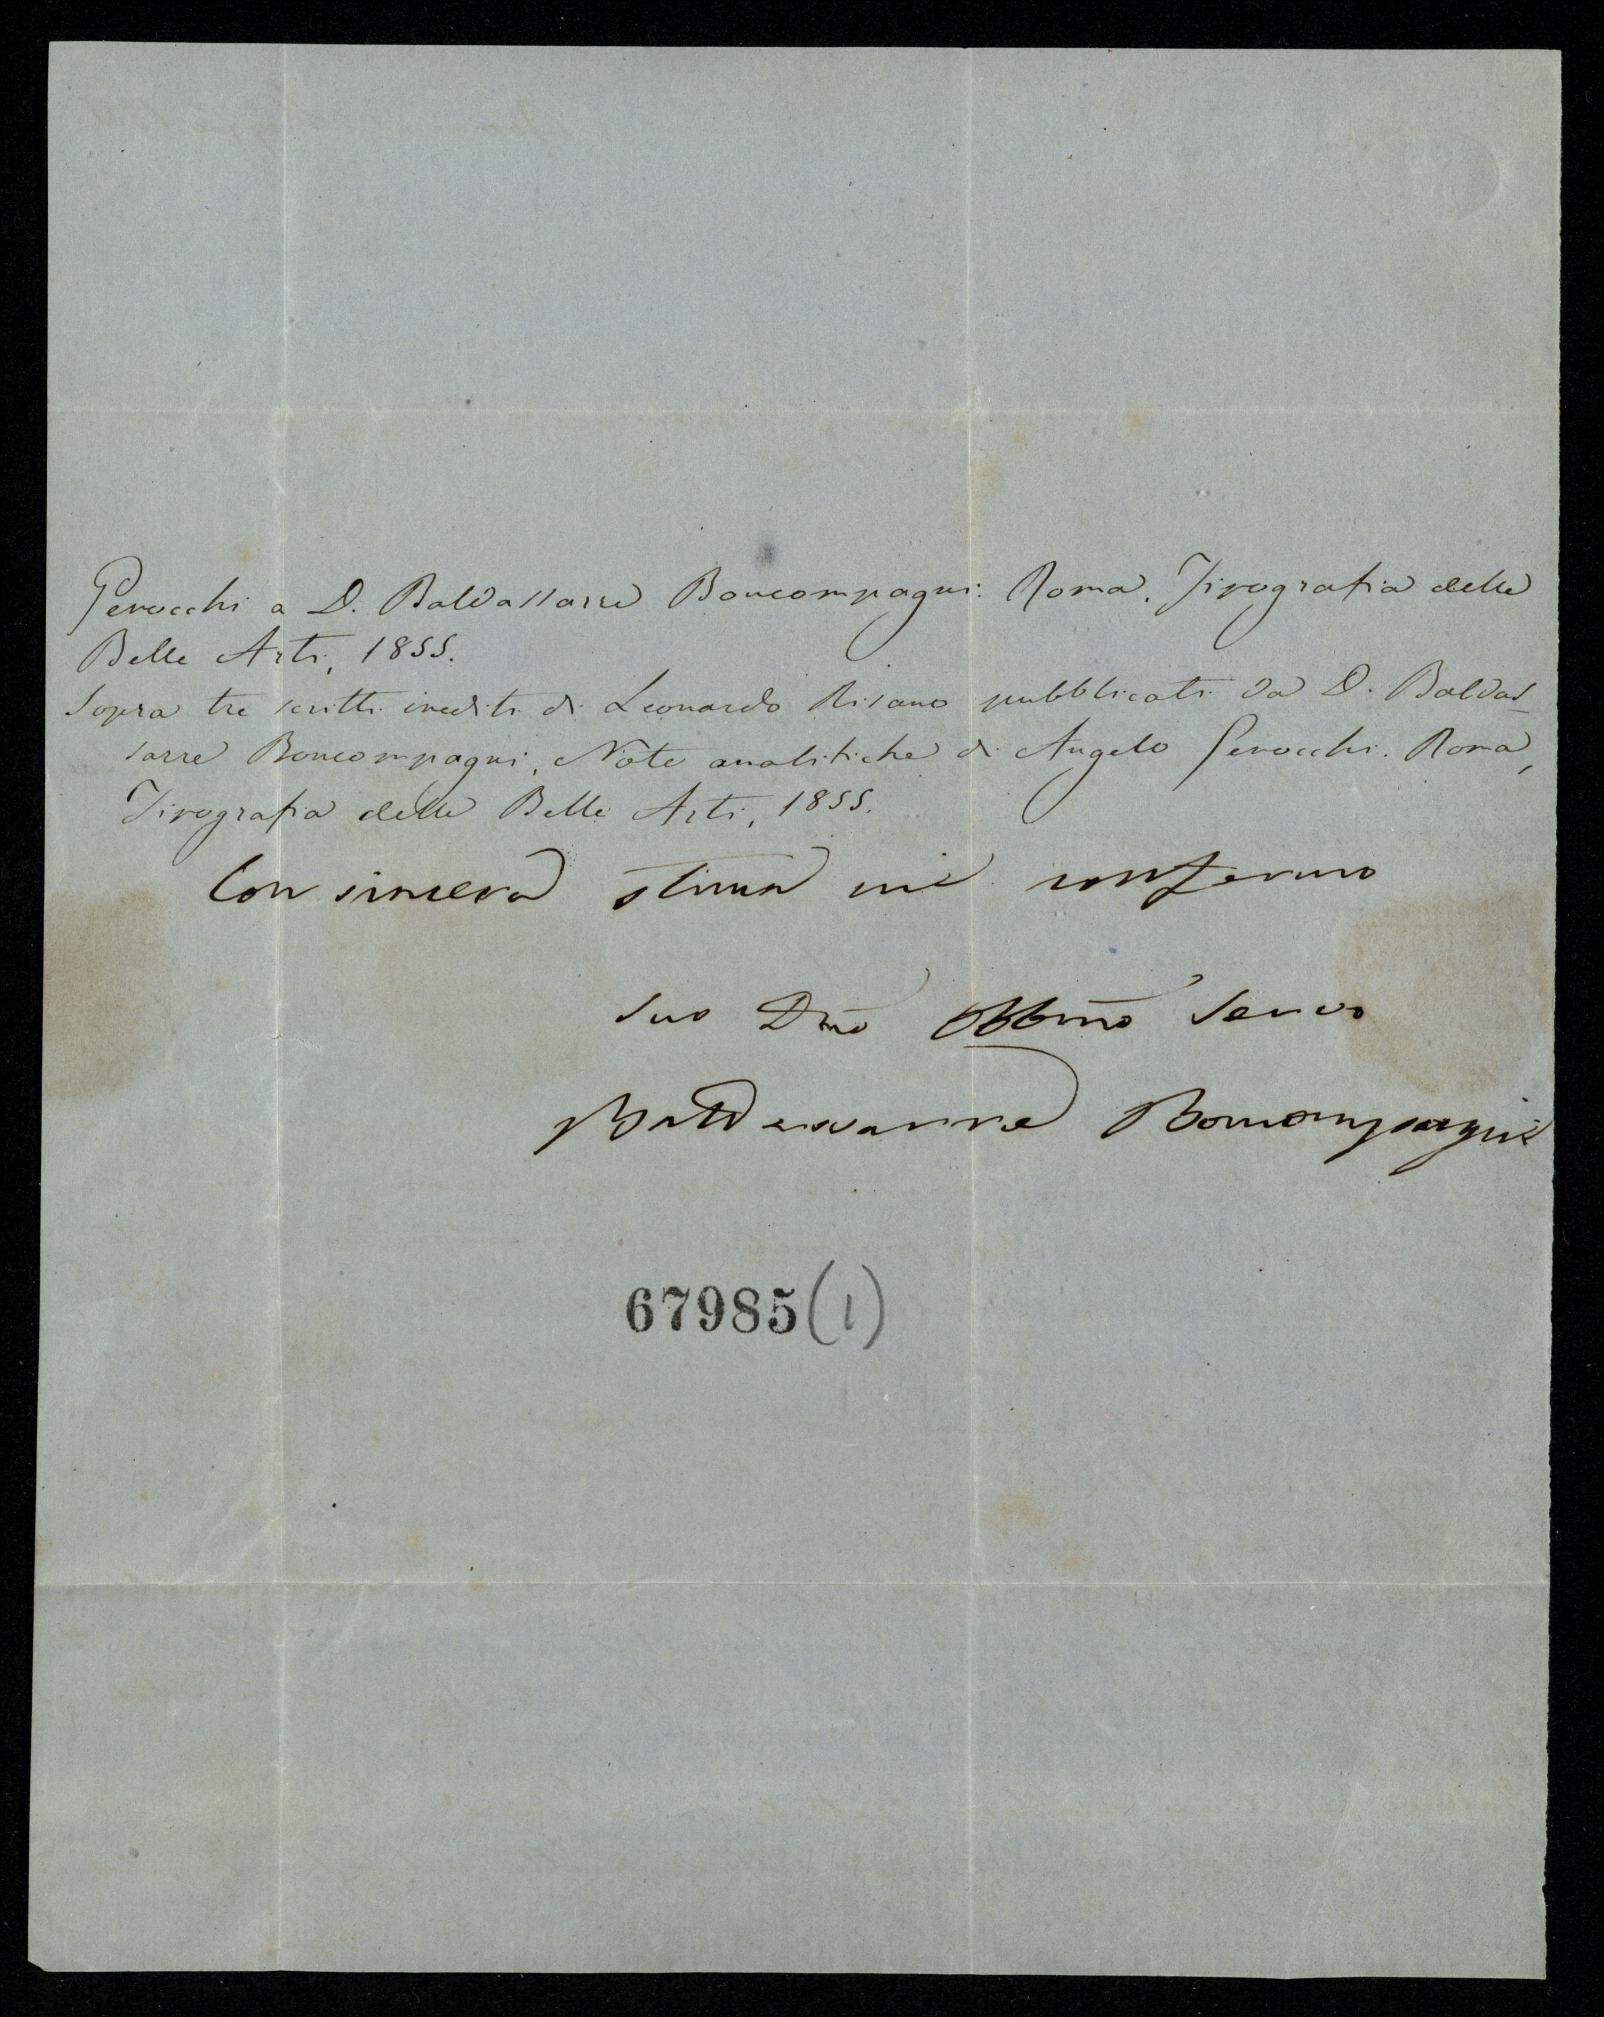 Genocchi a D. Baldassarre Boncompagni. Roma, Tipografia delle
Belle Arti, 1855.
Sopra tre scritti inediti di Leonardo Pisano pubblicati da D. Baldas_
sarre Boncompagni, Note analitiche di Angelo Genocchi. Roma,
Tipografia delle Belle Arti, 1855.
Con sincera stima mi confermo
Suo Dmo Obbmo Servo
Baldassarre Boncompagni
67985(1)